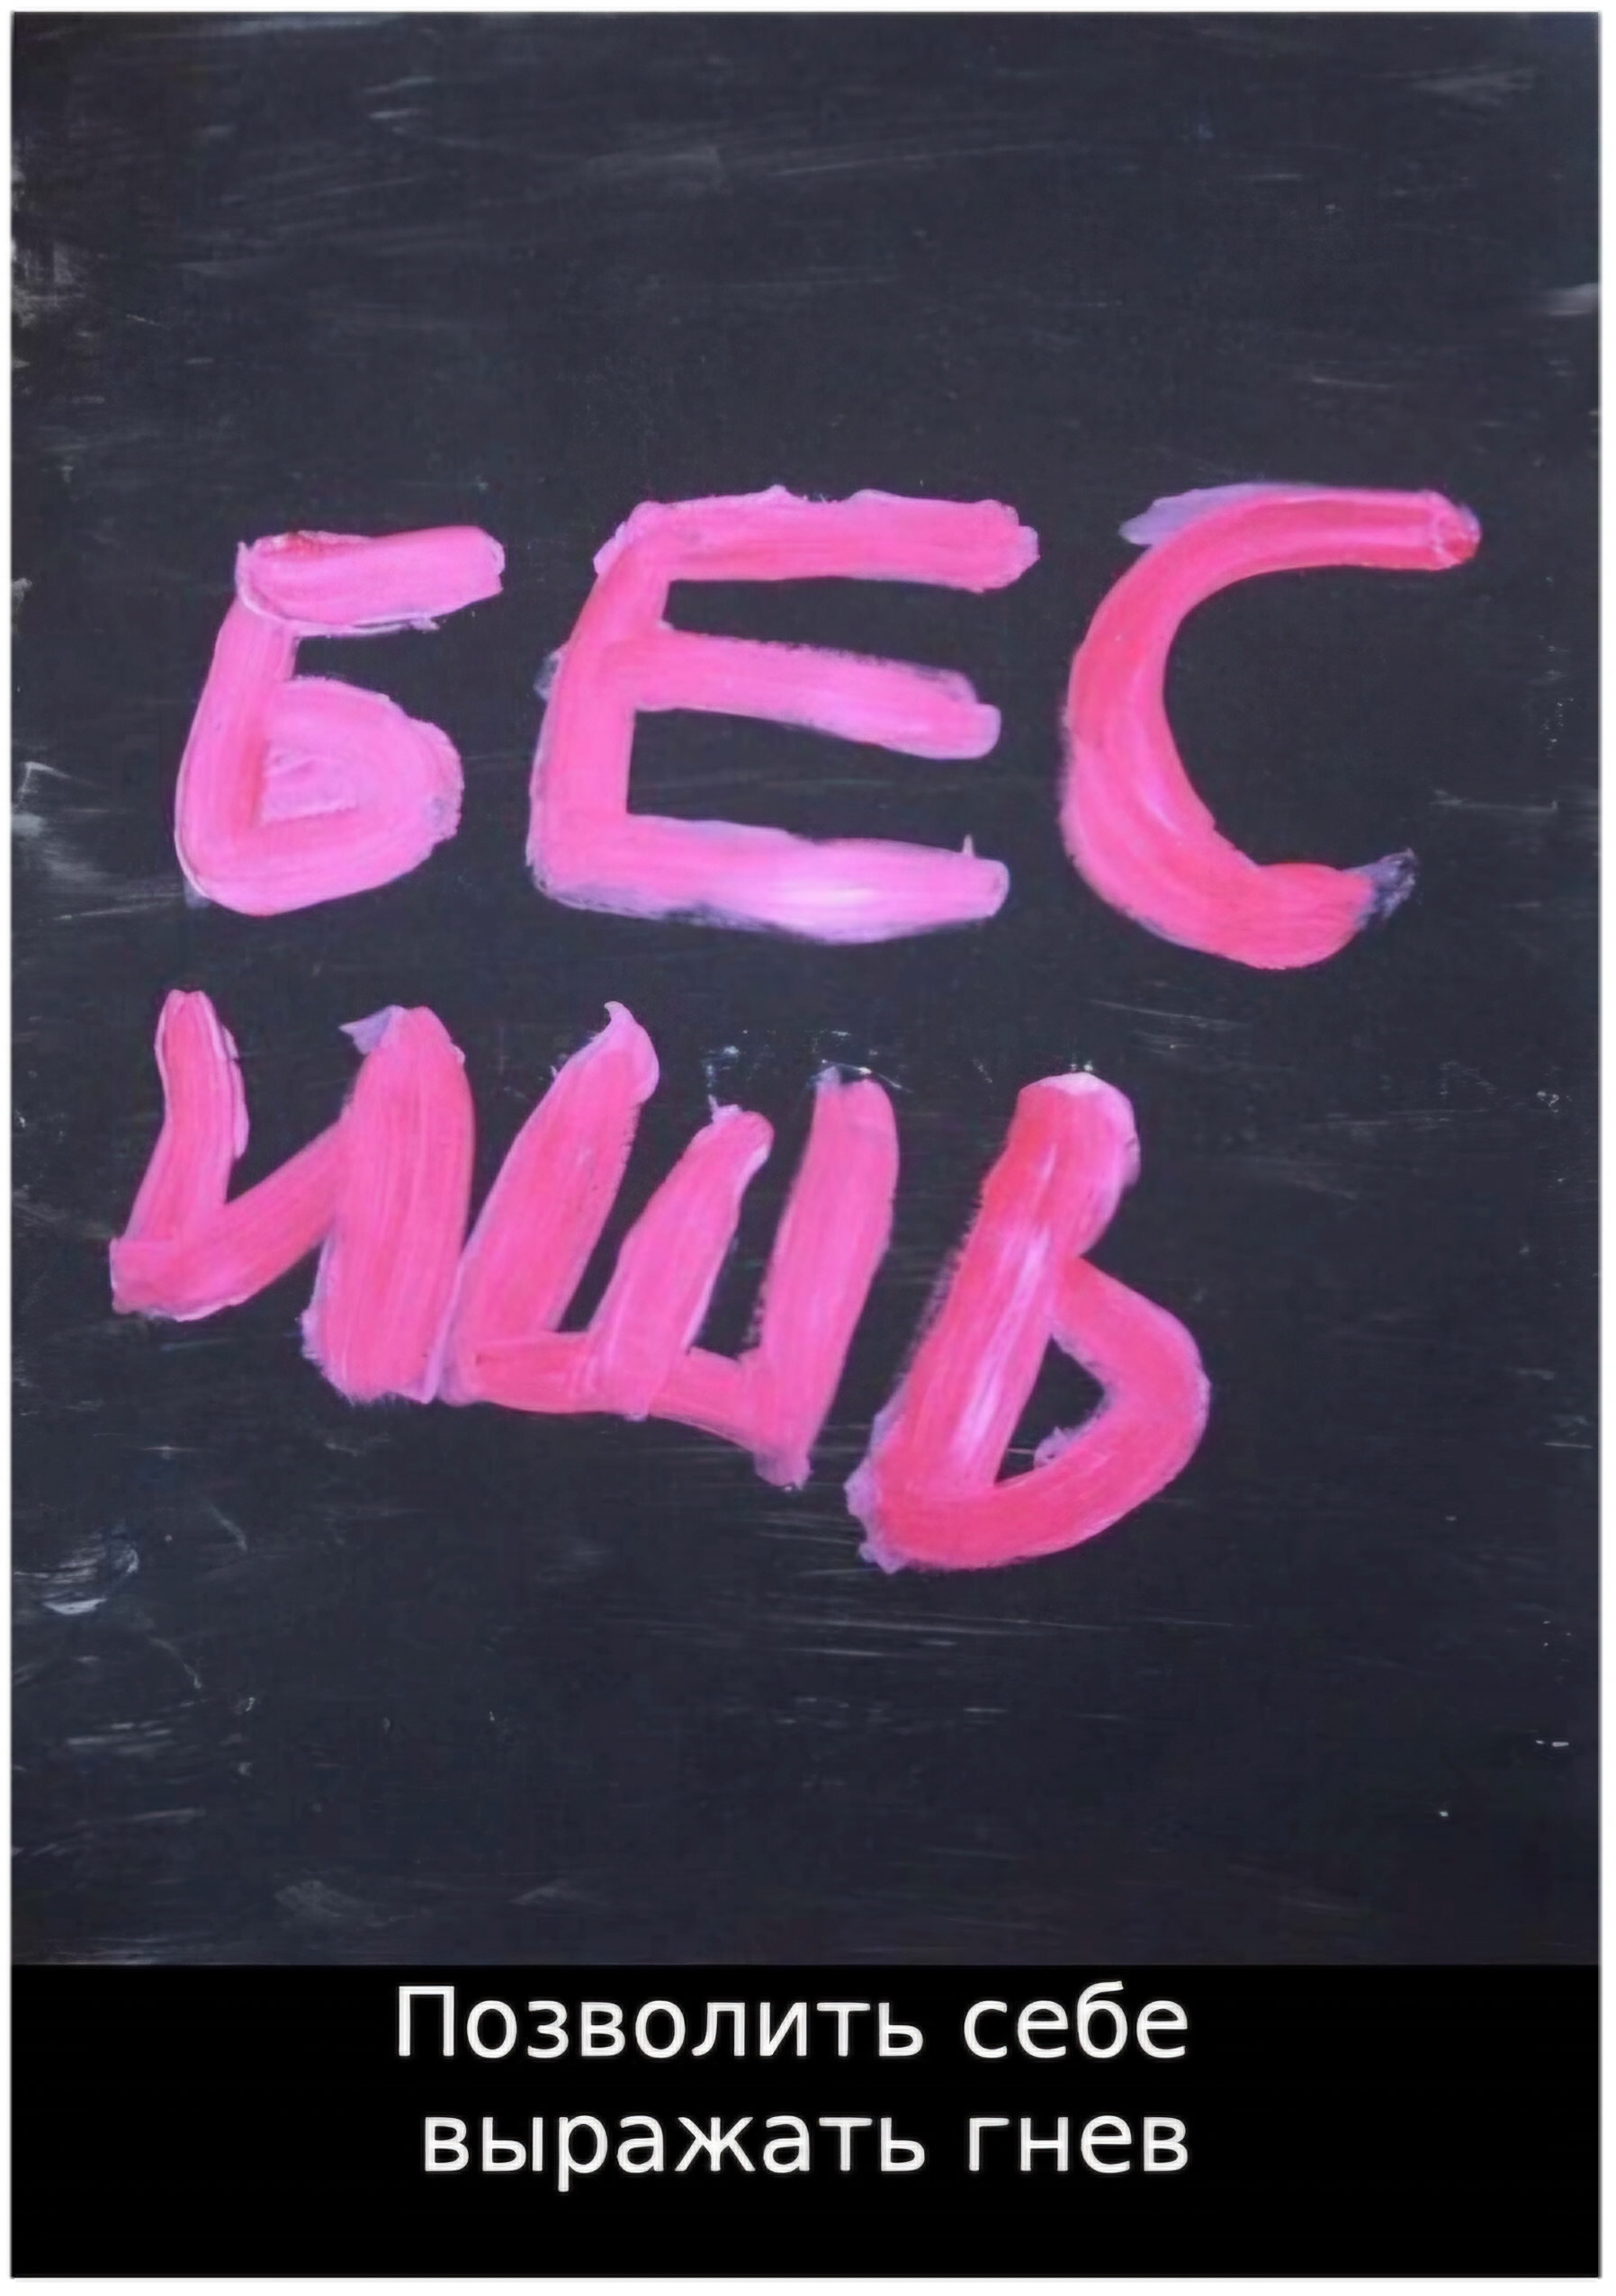 БЕС
ИШЬ
Позволить себе
выражать гнев